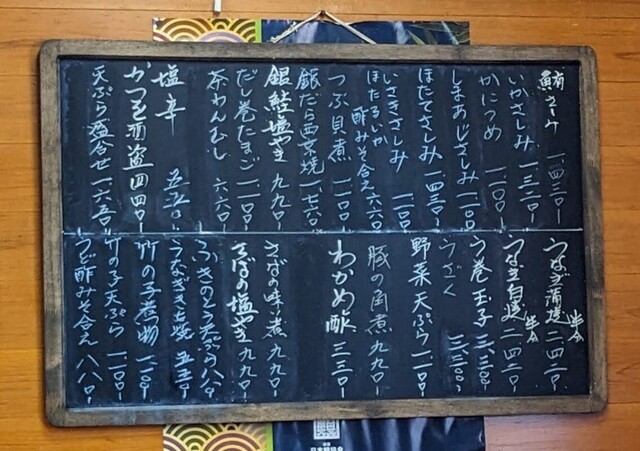 鮪さしみ 一四三〇-
いかさしみ 一三二〇-
かにつめ 一一〇〇-
しまあじさしみ 一一〇〇-
ほたてさしみ 一四三〇-
いさきさしみ 一一〇〇-
ほたるいか酢みそ合え 六六〇-
つぶ貝煮 一一〇〇-
銀だら西京焼 一七六〇-
銀鮭塩やき 九九〇-
だし巻たまご 一一〇〇-
茶わんむし 六六〇-
塩辛 五五〇-
かつを酒盗 四四〇-
天ぷら盛合せ 一六五〇-
うなぎ蒲焼 半分 二四二〇-
うなぎ白焼 半分 二四二〇-
う巻玉子 三三〇〇-
うざく 三三〇〇-
野菜天ぷら 一一〇〇-
豚の角煮 九九〇-
わかめ酢 三三〇-
さばの味噌煮 九九〇-
さばの塩やき 九九〇-
ふきのとう天ぷら 八八〇-
うなぎきも焼 五五〇-
竹の子煮物 一一〇〇-
竹の子天ぷら 一一〇〇-
うど酢みそ合え 八八〇-